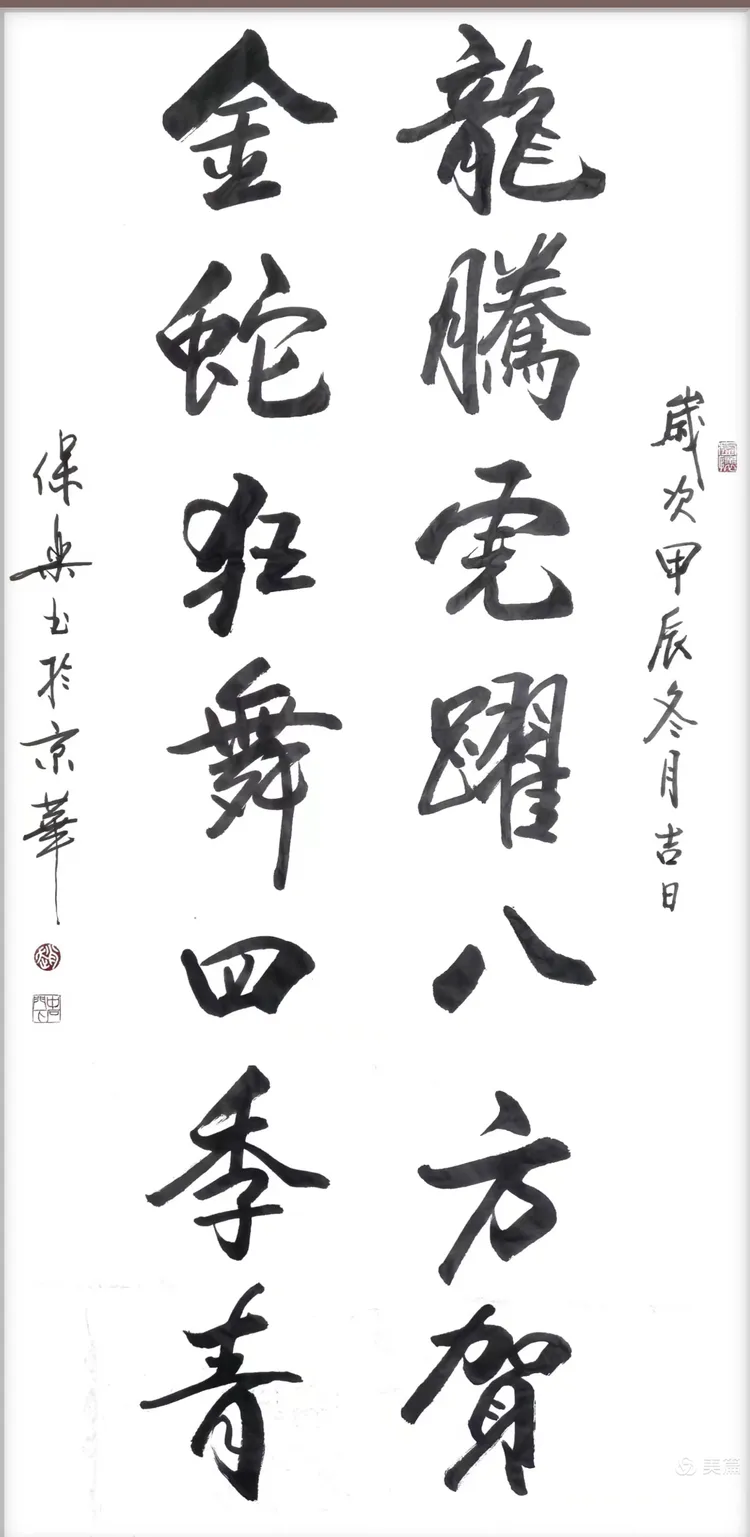 歲次甲辰冬月吉日
龍騰虎躍八方賀
金蛇狂舞四季青
保书於京華
中石門下
美篇